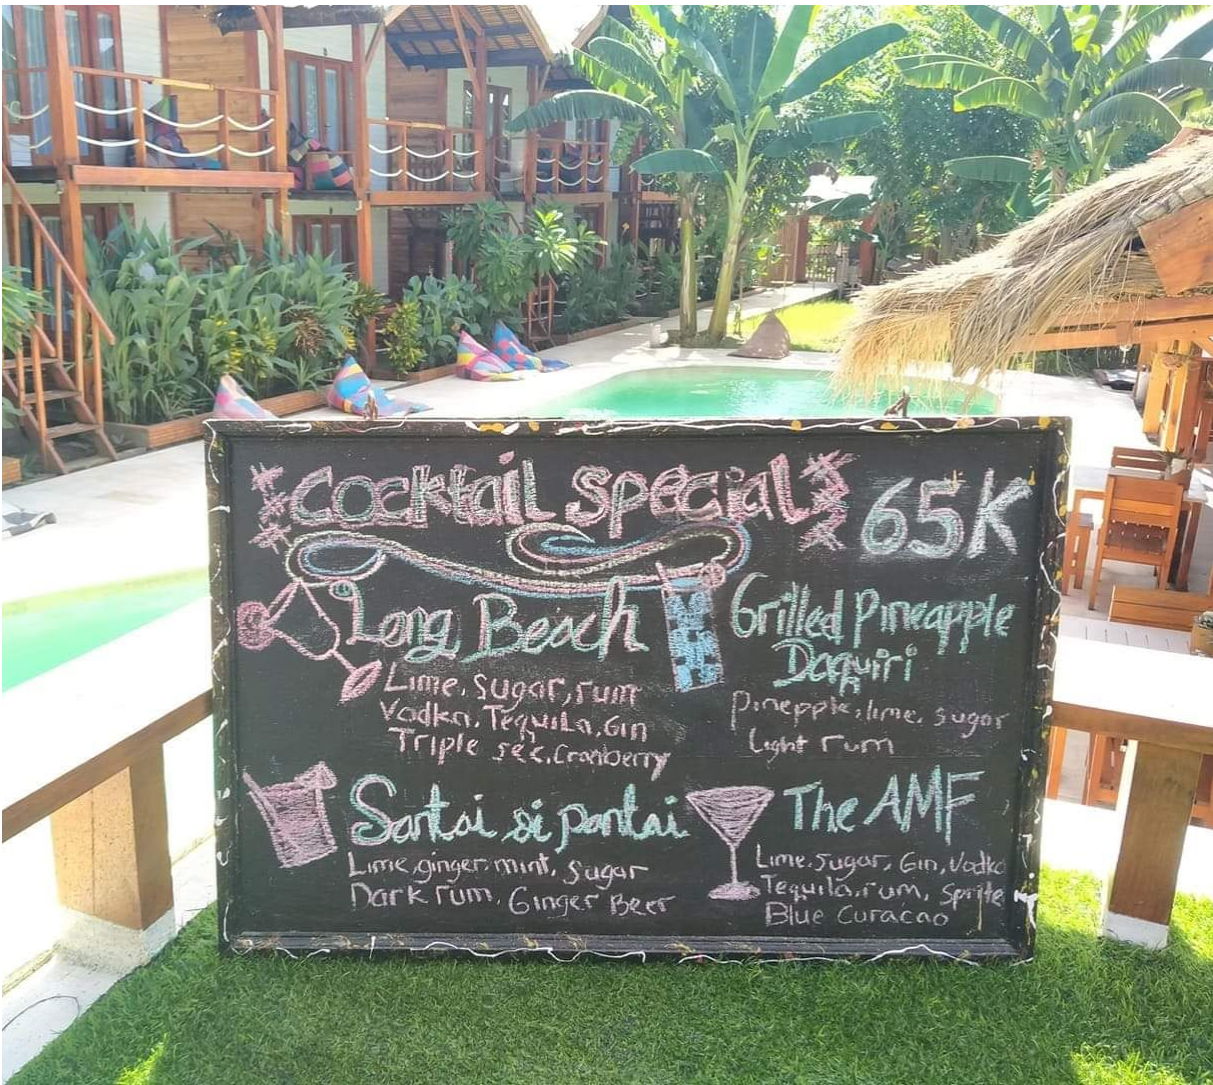 Cocktail Special 65K
Long Beach
Lime, Sugar, rum
Vodka, Tequila, Gin
Triple sec, Cranberry
Grilled Pineapple
Daquiri
Pinepple, lime, sugar
light rum
Santai di pantai
Lime, ginger, mint, sugar
Dark rum, Ginger Beer
The AMF
Lime, Sugar, Gin, Vodka
Tequila, rum, Sprite
Blue Curacao